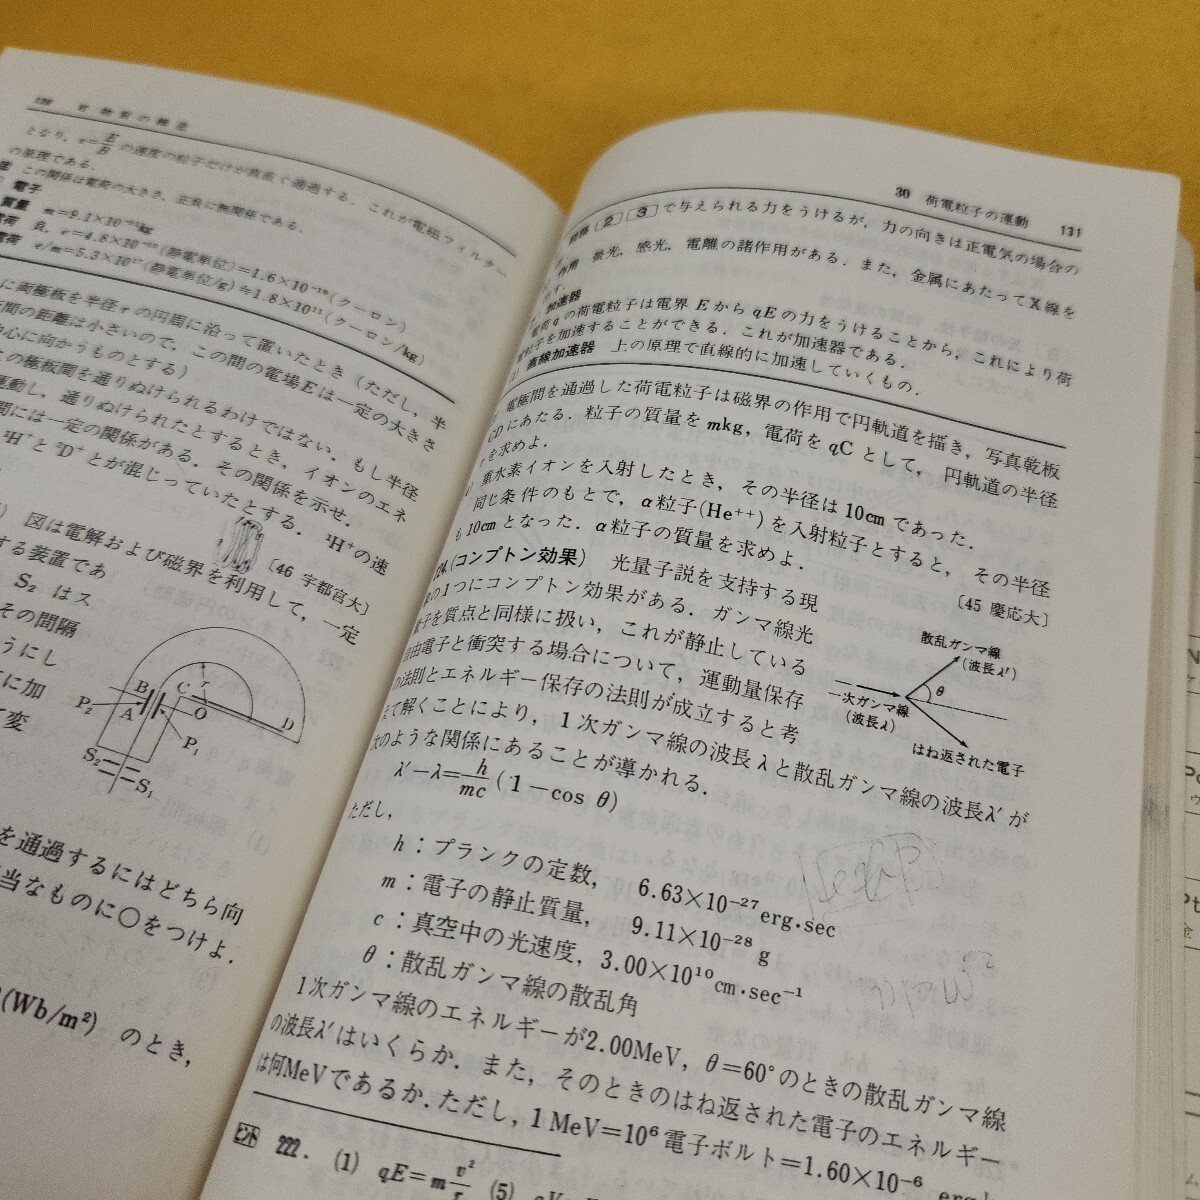 の物質の構造
となり，v=E/B の速度の粒子だけが真直ぐ通過する．これが電磁フィルター
の原理である．
この関係は電荷の大きさ，正負に無関係である．
電子
質量 m=9.1×10⁻³¹kg
電荷 負，e=4.8×10⁻¹⁰(静電単位)=1.6×10⁻¹⁹(クーロン)
電荷 e/m=5.3×10¹⁷(静電単位/g)≒1.8×10¹¹(クーロン/kg)
に両極板を半径rの円間に沿って置いたとき(ただし，半
間の距離は小さいので，この間の電場Eは一定の大きさ
心に向かうものとする)
の極板間を通りぬけられるわけではない．もし半径
運動し，通りぬけられたとするとき，イオンのエネ
間には一定の関係がある．その関係を示せ．
¹H⁺と²D⁺とが混じっていたとする．¹H⁺の速
〔46 宇都宮大〕
図は電解および磁界を利用して，一定
する装置であ
S₂ はス
その間隔
うにし
に加
て変
P₂ B A C r O D P₁ S₂ S₁
を通過するにはどちら向
当なものに○をつけよ．
(Wb/m²) のとき，
30 荷電粒子の運動 131
2 3 で与えられる力をうけるが，力の向きは正電気の場合の
作用 蛍光，感光，電離の諸作用がある．また，金属にあたってX線を
加速器
電荷qの荷電粒子は電界EからqEの力をうけることから，これにより荷
電粒子を加速することができる．これが加速器である．
直線加速器 上の原理で直線的に加速していくもの．
電極間を通過した荷電粒子は磁界の作用で円軌道を描き，写真乾板
CDにあたる．粒子の質量をmkg，電荷をqCとして，円軌道の半径
rを求めよ．
重水素イオンを入射したとき，その半径は10cmであった．
同じ条件のもとで，α粒子(He⁺⁺)を入射粒子とすると，その半径
も10cmとなった．α粒子の質量を求めよ．
〔45 慶応大〕
24.(コンプトン効果) 光量子説を支持する現
象の1つにコンプトン効果がある．ガンマ線光
子を質点と同様に扱い，これが静止している
自由電子と衝突する場合について，運動量保存
の法則とエネルギー保存の法則が成立すると考
えて解くことにより，1次ガンマ線の波長λと散乱ガンマ線の波長λ′が
次のような関係にあることが導かれる．
散乱ガンマ線
(波長λ′)
θ
一次ガンマ線
(波長λ)
はね返された電子
λ′−λ=h/mc(1−cos θ)
ただし，
h：プランクの定数， 6.63×10⁻²⁷erg・sec
m：電子の静止質量， 9.11×10⁻²⁸ g
c：真空中の光速度，3.00×10¹⁰cm・sec⁻¹
θ：散乱ガンマ線の散乱角
1次ガンマ線のエネルギーが2.00MeV，θ=60°のときの散乱ガンマ線
の波長λ′はいくらか．また，そのときのはね返された電子のエネルギー
は何MeVであるか．ただし，1 MeV=10⁶電子ボルト=1.60×10⁻⁶
ヒント 222. (1) qE=m v²/r (5)